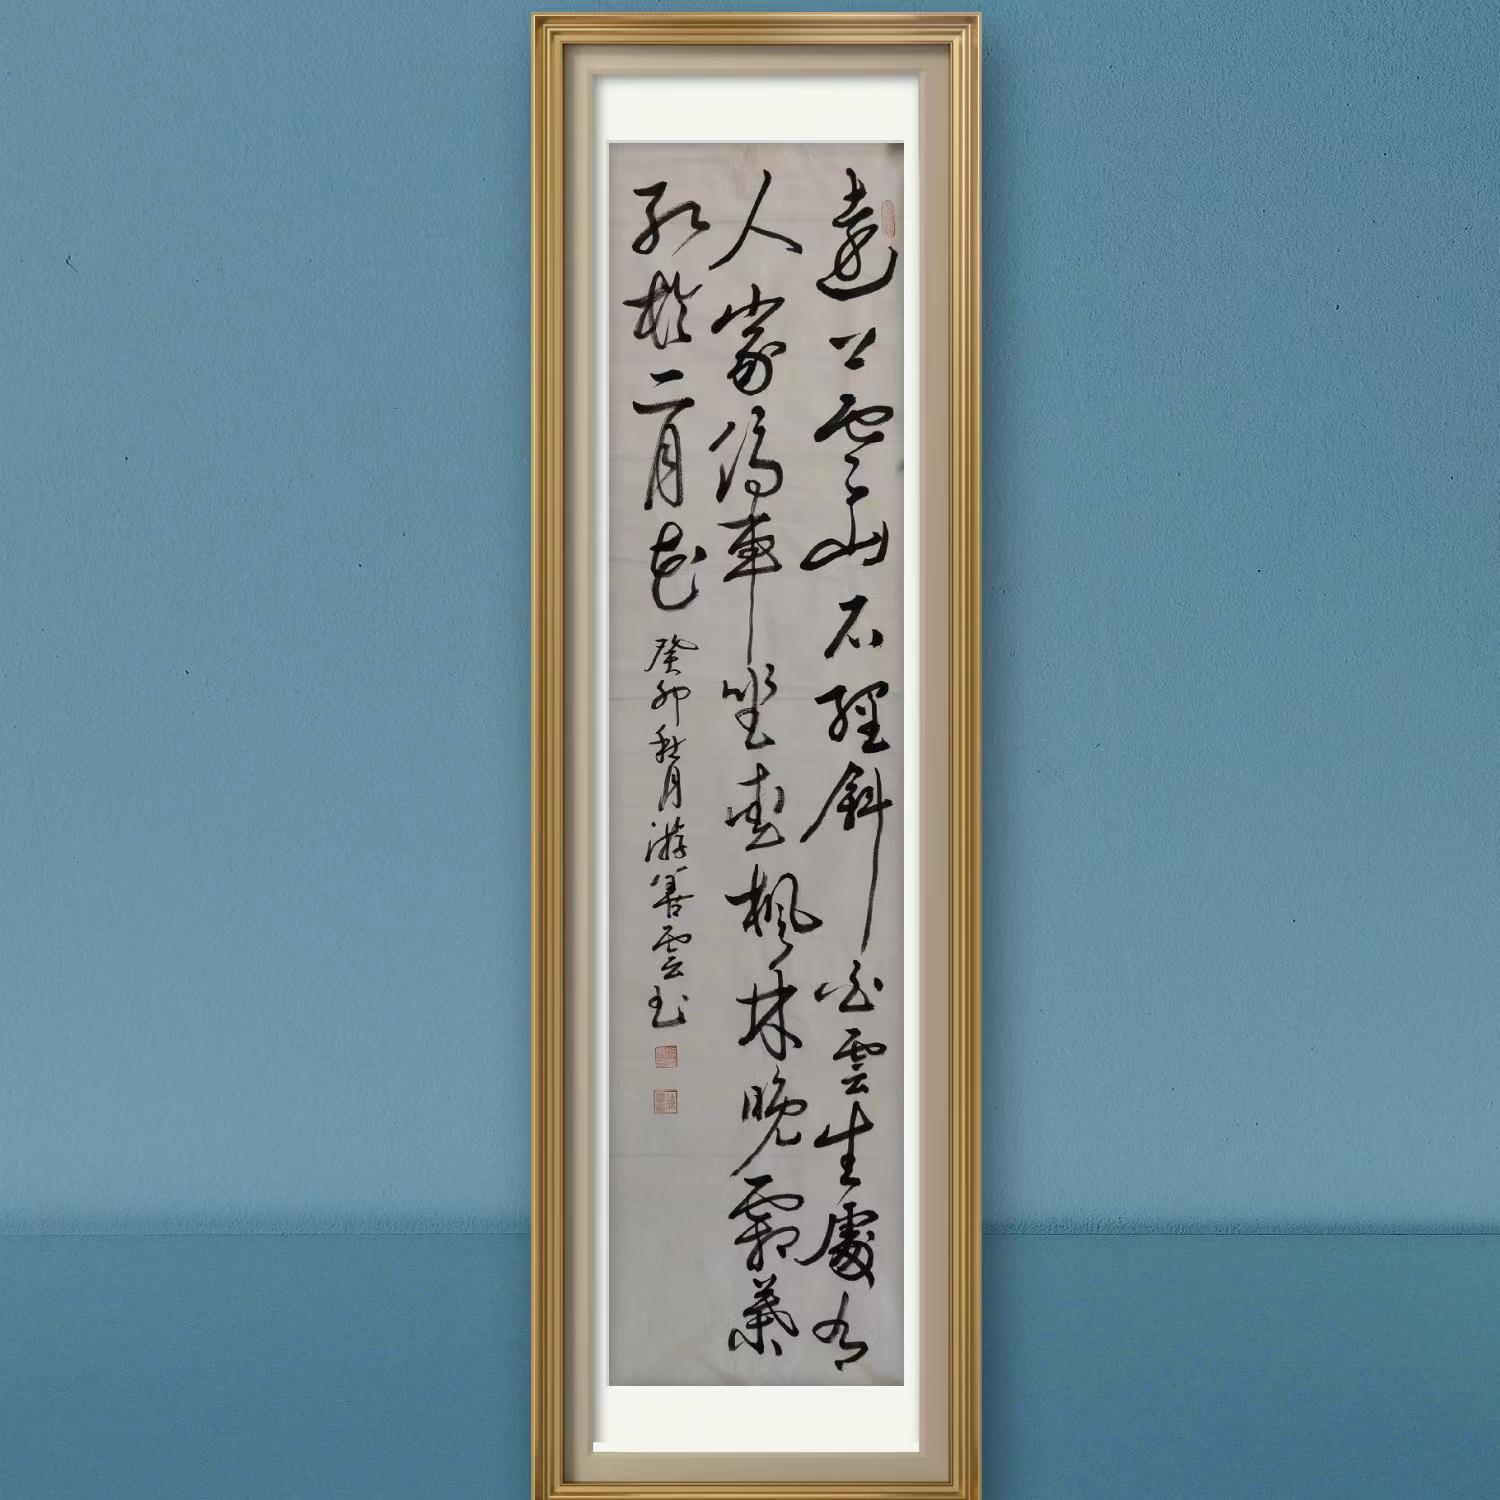 遠上寒山石徑斜白雲生處有
人家停車坐愛楓林晚霜葉
紅於二月花
癸卯秋月游善雲书